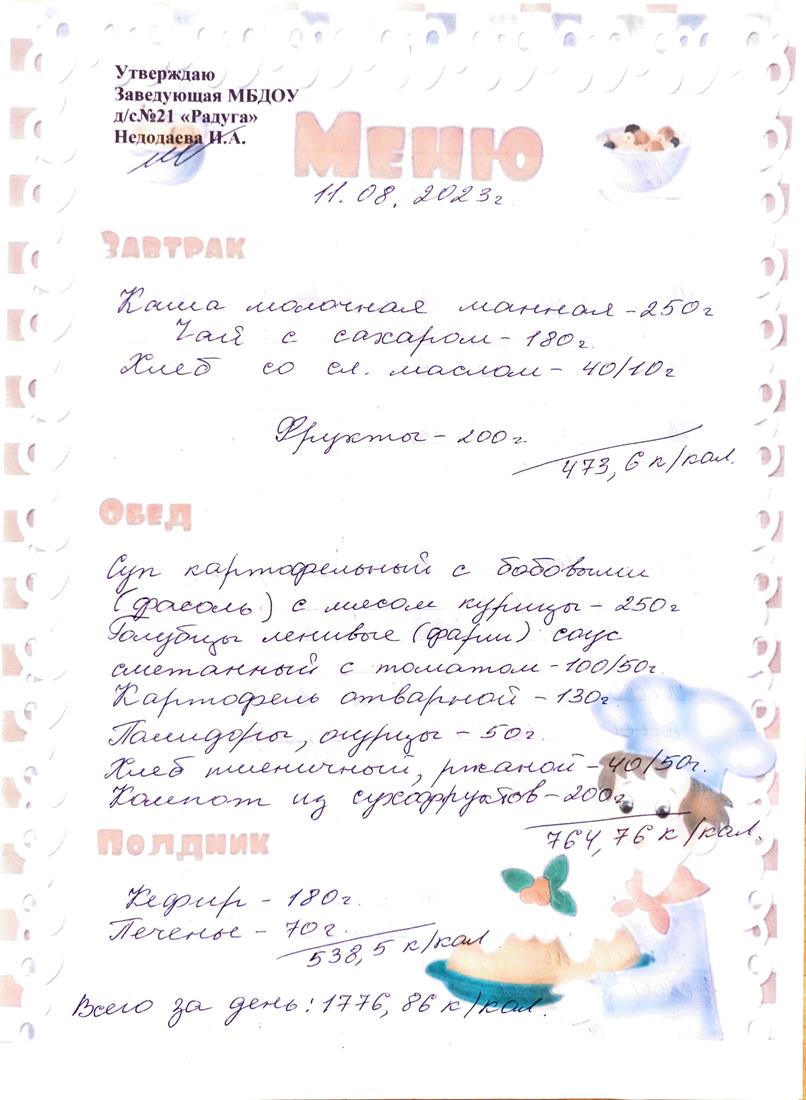 Утверждаю
Заведующая МБДОУ
д/с.№21 «Радуга»
Недодаева И.А.
Меню
11.08.2023г
Завтрак
Каша молочная манная - 250г
Чай с сахаром - 180г.
Хлеб со сл. маслом - 40/10г
Фрукты - 200г.
473,6 к/кал.
Обед
Суп картофельный с бобовыми
(фасоль) с мясом курицы - 250г
Голубцы ленивые (фарш) соус
сметанный с томатом - 100/50г.
Картофель отварной - 130г.
Помидоры, огурцы - 50г.
Хлеб пшеничный, ржаной - 40/50г.
Компот из сухофруктов - 200г
764,76 к/кал.
Полдник
Кефир - 180г.
Печенье - 70г.
538,5 к/кал
Всего за день: 1776,86 к/кал.